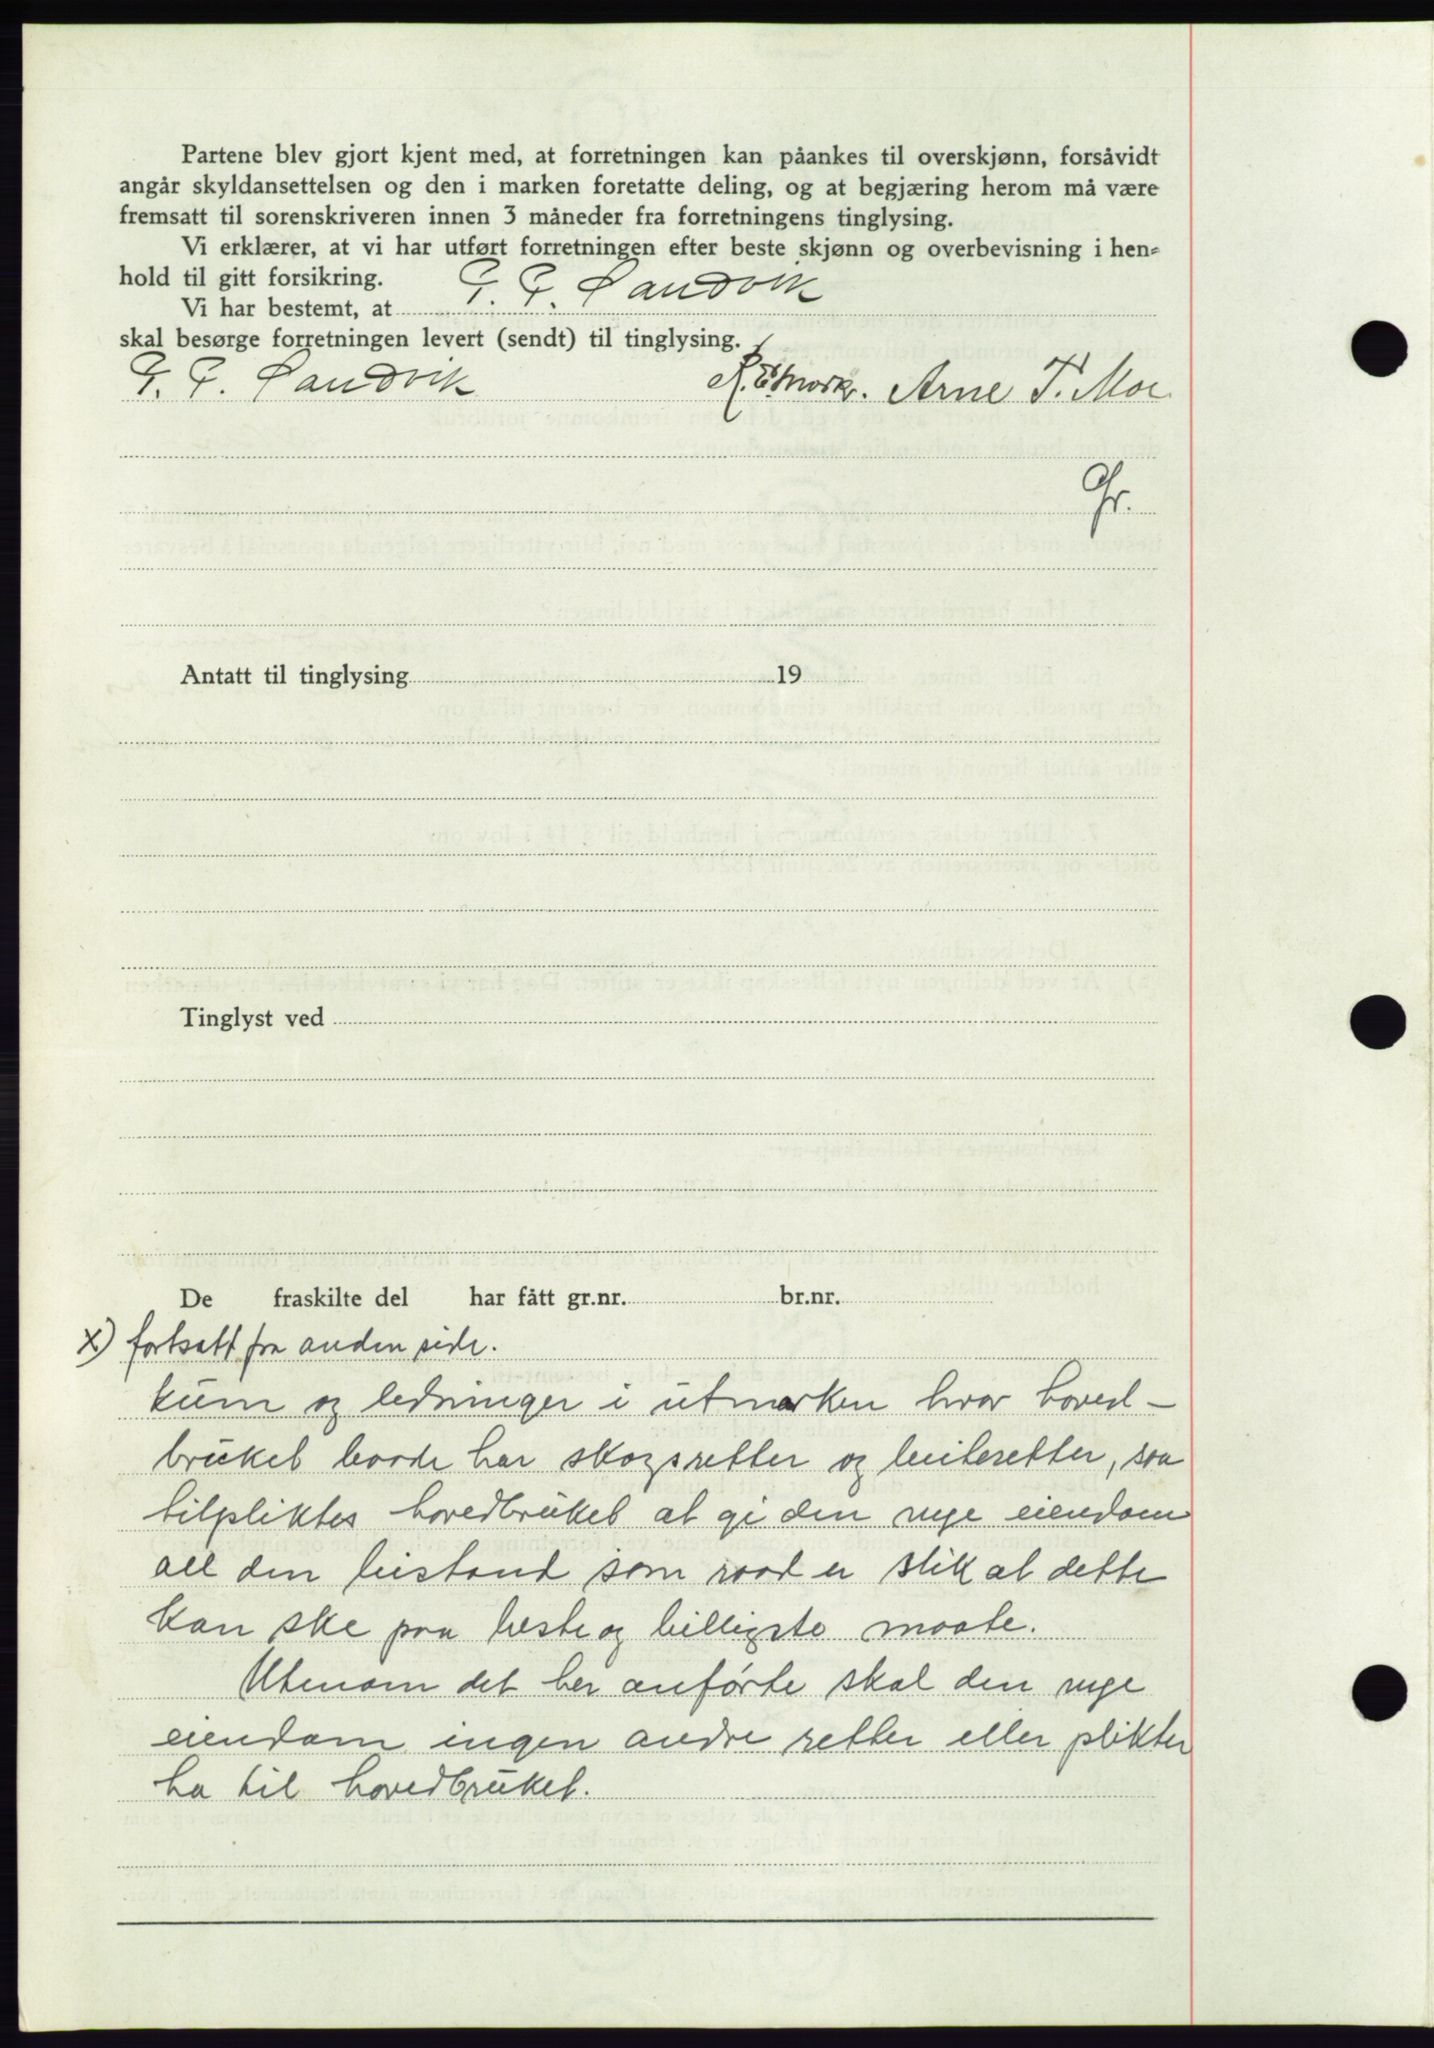 Partene blev gjort kjent med, at forretningen kan påankes til overskjønn, forsåvidt
angår skyldansettelsen og den i marken foretatte deling, og at begjæring herom må være
fremsatt til sorenskriveren innen 3 måneder fra forretningens tinglysing.
Vi erklærer, at vi har utført forretningen efter beste skjønn og overbevisning i hen-
hold til gitt forsikring.
Vi har bestemt, at Sandvik
skal besørge forretningen levert (sendt) til tinglysing.
Sandvik R. E. Mork. Arne T. Moe
Gr.
Antatt til tinglysing 19
Tinglyst ved
De fraskilte del har fått gr.nr. br.nr.
x) fortsatt fra anden side.
kum og ledninger i utmarken hvor hoved-
bruket baade har skogsretter og beiteretter, saa
tilpliktes hovedbruket at gi den nye eiendom
all den bistand som raad er slik at dette
kan ske paa beste og billigste maate.
Utenom det her anførte skal den nye
eiendom ingen andre retter eller plikter
ha til hovedbruket.